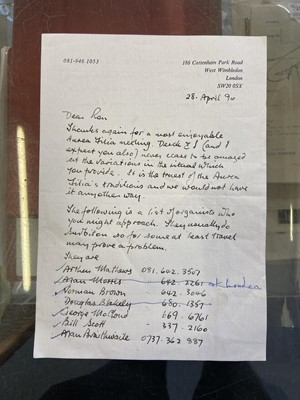 081-946 1053
186 Cottenham Park Road
West Wimbledon
London
SW20 0SX
28. April 90
Dear Ron
Thanks again for a most enjoyable
Aurea Filia meeting. Derek & I (and I
expect you also) never cease to be amazed
at the variations in the ritual which
you provide. It is the truest of the Aurea
Filia's traditions and we would not have
it any other way.
The following is a list of organists who
you might approach. They usually do
Surbiton so for some at least travel
may prove a problem.
They are
Arthur Mathews 081. 602. 3507
Alan Morris 642 - 2261
Norman Brown 642 - 3046
Douglas Blakeley 680 - 1357
George 669 - 6761
Bill Scott - 337 - 2160
Alan Braithwaite 0737 - 362 887